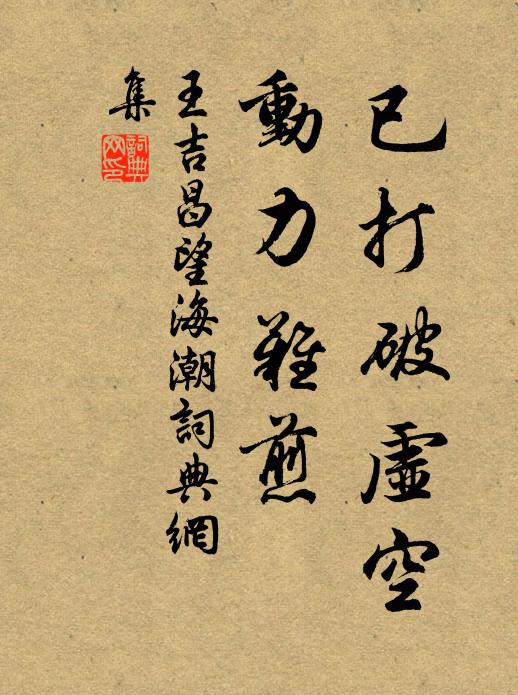 已打破虛空
動力難煎
王吉昌望海潮詞典網
集
詞典網印